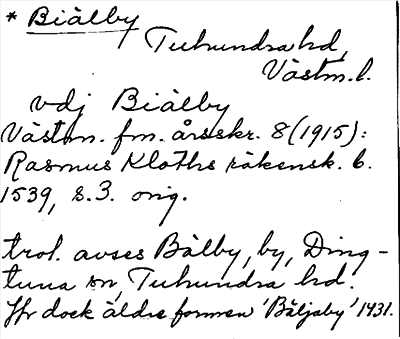 * Biälby
Tuhundra hd,
Västm. l.
vdj Biälby
Västm. fm. årsskr. 8 (1915):
Rasmus Kloths räkensk. b.
1539, s. 3. orig.
trol. avses Bälby, by, Ding-
tuna sn, Tuhundra hd.
Jfr dock äldre formen 'Bäljaby' 1431.